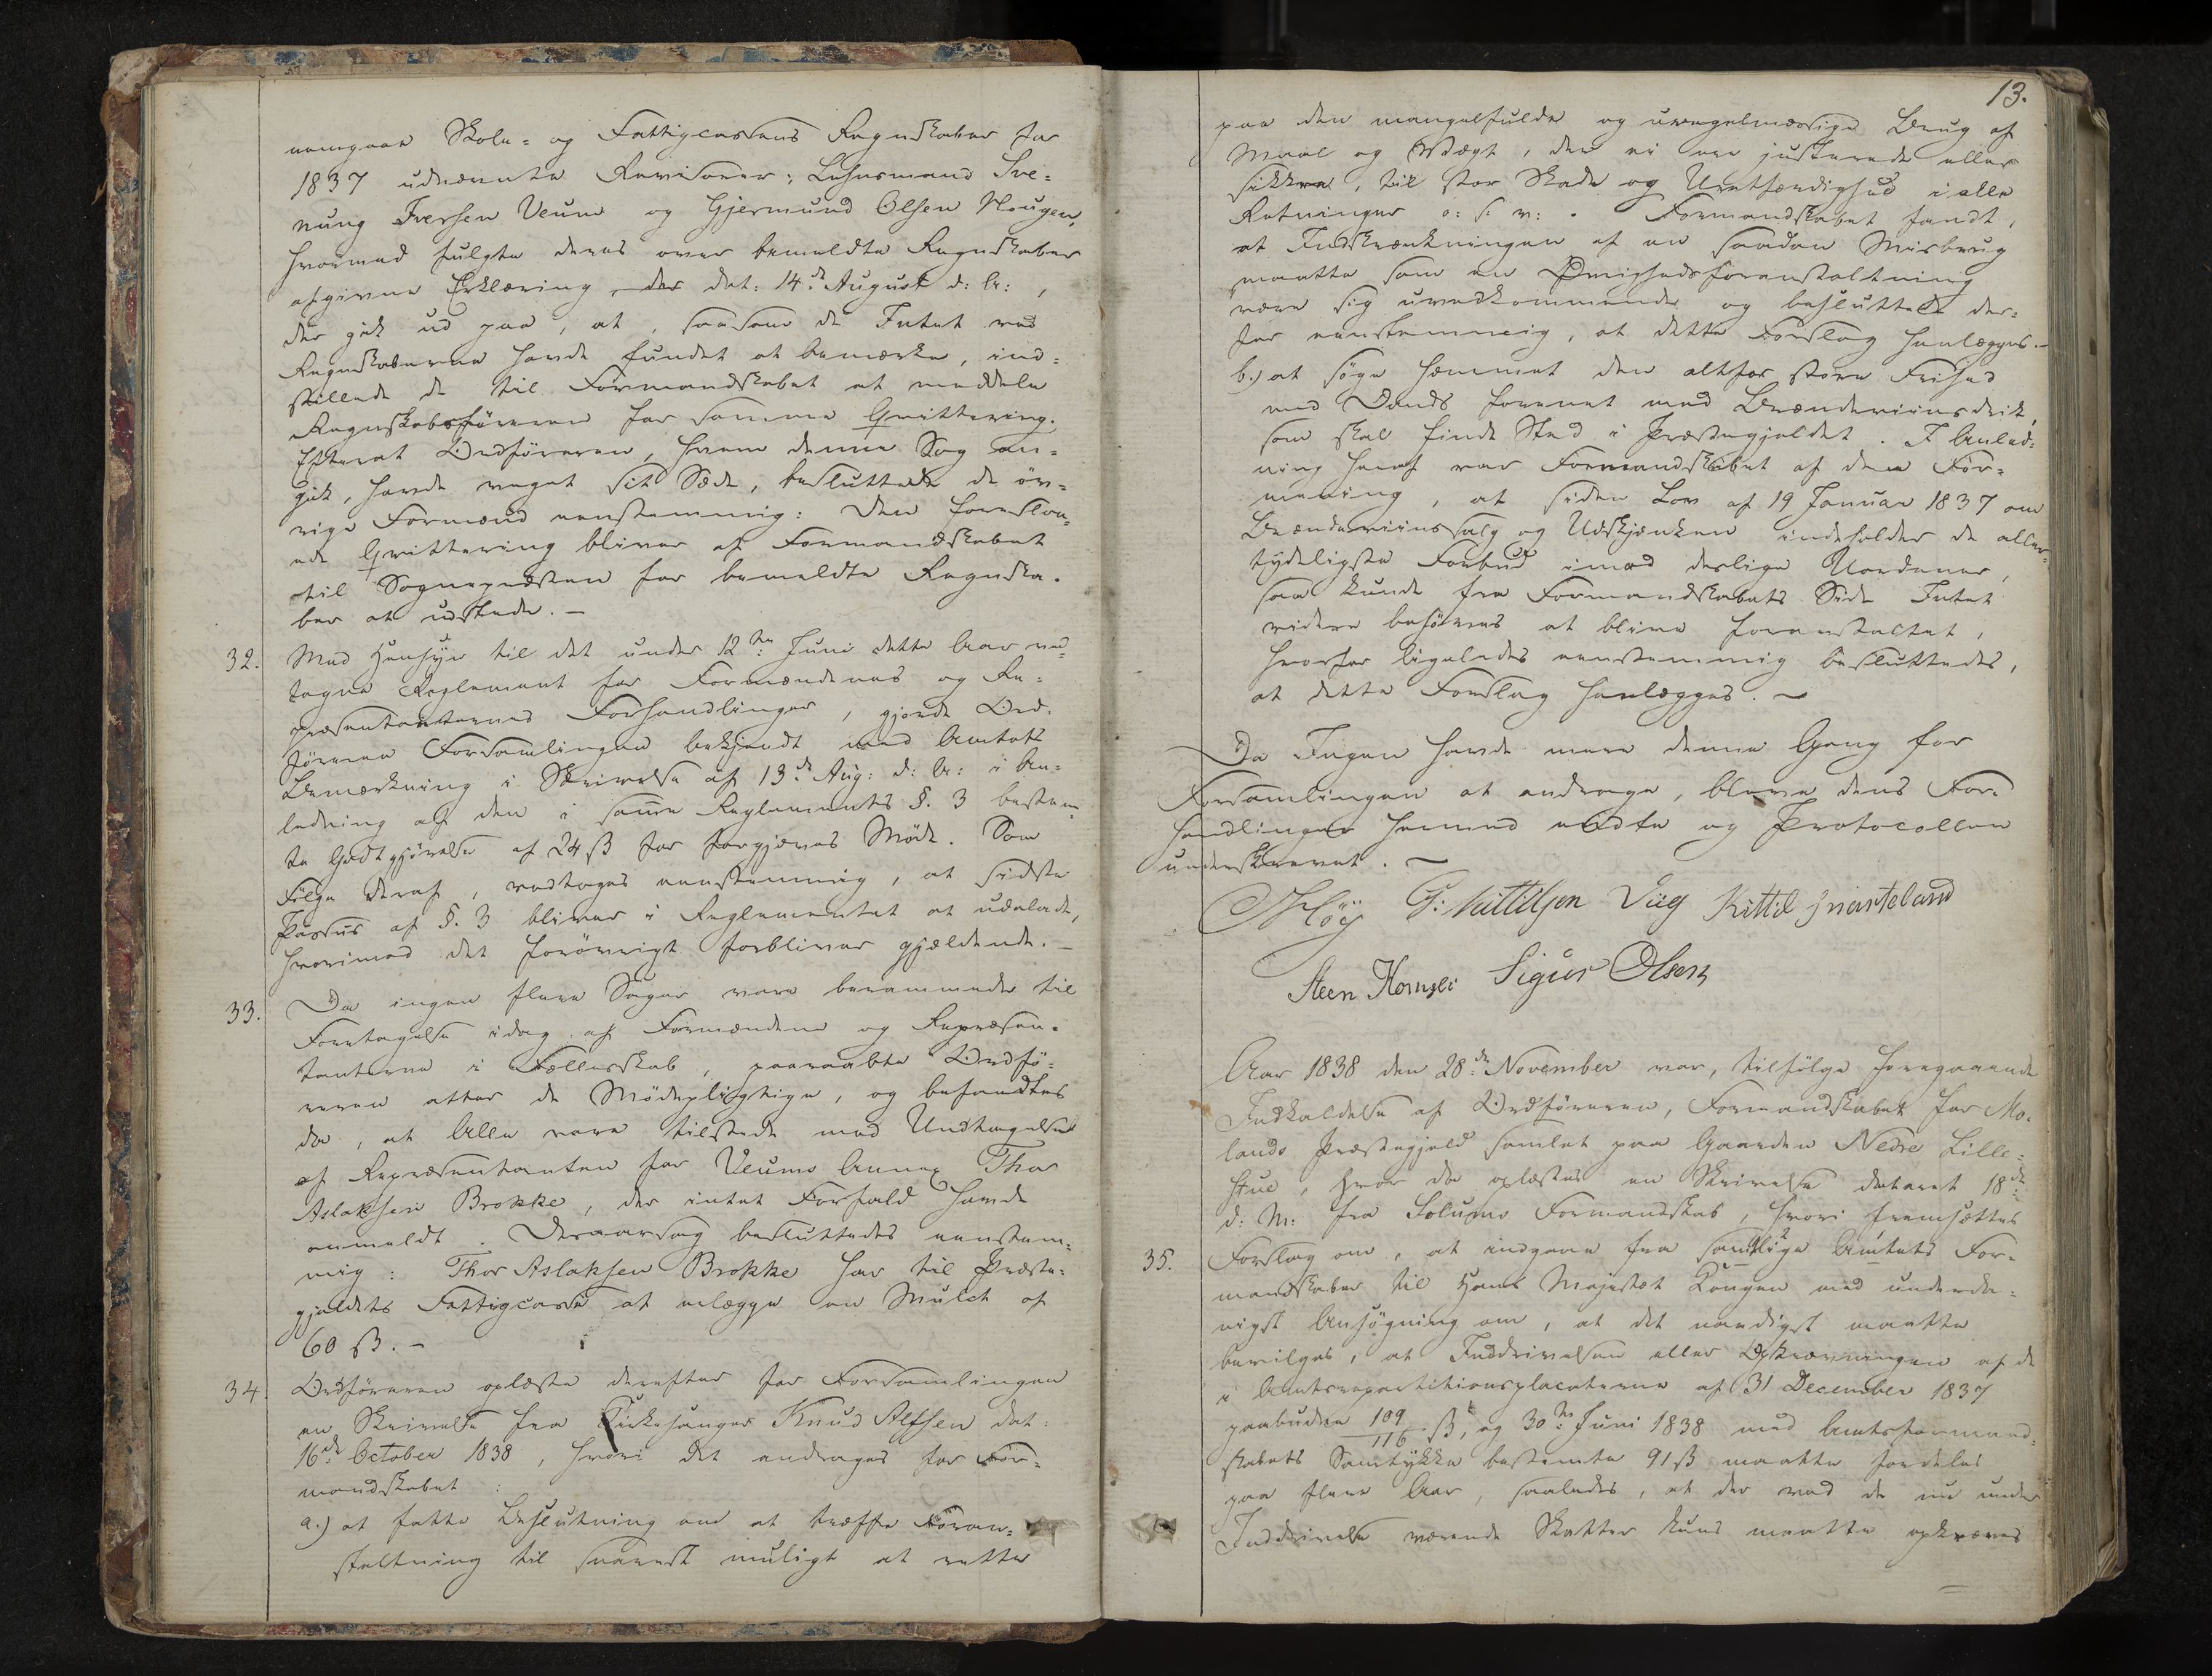 nemgaae Skole- og Fattigcassens Regnskaber for
1837 udnævnte Revisorer: Lehnsmand Sve-
nung Iversen Veum og Gjermund Olsen Nougen,
hvormed fulgte deres over bemeldte Regnskaber
afgivne Erklæring dat: 14de August d: A:,
der gik ud paa, at, saasom de Intet ved
Regnskaberne havde fundet at bemærke, ind-
stillede de til Formandskabet at meddele
Regnskabsföreren for samme Qvittering.
Efterat Ordföreren, hvem denne Sag an-
gik, havde veget sit Sæde, besluttede de öv-
rige Formænd eenstemmig: Den foreslaa-
ede Qvittering bliver af Formandskabet
til Sognepræsten for bemeldte Regnska-
ber at udstede. —
32. Med Hensyn til det under 12te Juni dette Aar ved-
tagne Reglement for Formændenes og Re-
præsentanternes Forhandlinger, gjorde Ord-
föreren Forsamlingen bekjendt med Amtets
Bemærkning i Skrivelse af 13de Aug: d: A: i An-
ledning af den i samme Reglements §. 3 bestem-
te Godtgjörelse af 24 ß for forgjæves Möde. Som
Fölge deraf, vedtoges eenstemmig, at sidste
Passus af §. 3 bliver i Reglementet at udelade,
hvorimod det forövrigt forbliver gjældende. —
33. Da ingen flere Sager vare berammede til
Foretagelse idag af Formændene og Repræsen-
tanterne i Fællesskab, paaraabte Ordfö-
reren atter de Mödepligtige, og befandtes
da, at Alle vare tilstede med Undtagelse
af Repræsentanten for Veums Annex Thor
Aslaksen Brokke, der intet Forfald havde
anmeldt. Desaarsag besluttedes eenstem-
mig: Thor Aslaksen Brokke har til Præste-
gjeldets Fattigcasse at erlægge en Mulct af
60 ß. —
34. Ordföreren oplæste derefter for Forsamlingen
en Skrivelse fra Kirkesanger Knud Alfsen dat:
16de October 1838, hvori det andrages for For-
mandskabet:
a.) at fatte Beslutning om at træffe Foran-
staltning til snarest muligt at rette
13.
paa den mangelfulde og uregelmæssige Brug af
Maal og Vægt, der ei ere justerede eller
sikkre, til stor Skade og Uretfærdighed i alle
Retninger o: s: v: . Formandskabet fandt,
at Indskrænkningen af en saadan Misbrug
maatte som en Övrighedsforanstaltning
være sig uvedkommende og besluttede der-
for eenstemmig, at dette Forslag henlægges. —
b.) at söge hæmmet den altfor store Frihed
med Dands forenet med Brændeviinsdrik,
som skal finde Sted i Præstegjeldet. I Anled-
ning heraf var Formandskabet af den For-
mening, at siden Lov af 19 Januar 1837 om
Brændeviinssalg og Udskjænken indeholder de aller-
tydeligste Forbud imod deslige Uordener,
saa kunde fra Formandskabets Side Intet
videre behöves at blive foranstaltet,
hvorfor ligeledes eenstemmig besluttedes,
at dette Forslag henlægges. —
Da Ingen havde mere denne Gang for
Forsamlingen at andrage, bleve dens For-
handlinger hermed endte og Protocollen
underskrevet. —
Höÿ G: Kittilsen Viig Kittil
Steen Sigur Olsen
Aar 1838 den 28de November var, tilfölge foregaaende
Indkaldelse af Ordföreren, Formandskabet for Mo-
lands Præstegjeld samlet paa Gaarden Nedre Lille-
stue, hvor da oplæstes en Skrivelse dateret 18de
d: M: fra Solums Formandskab, hvori fremsættes
35. Forslag om, at indgaae fra samtlige Amtets For-
mandskaber til Hans Majestæt Kongen med underda-
nigst Ansögning om, at det naadigst maatte
bevilges, at Inddrivelsen eller Opkrævningen af de
i Amtsrepartitionsplacaterne af 31 December 1837
paabudne 109/116 ß, og 30te Juni 1838 med Amtsformand-
skabets Samtykke bestemte 91 ß maatte fordeles
paa flere Aar, saaledes, at der ved de nu under
Inddrivelse værende Skatter kuns maatte opkræves